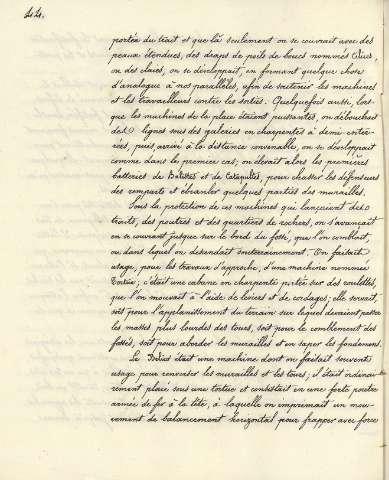 44.
portée du trait et que là seulement on se couvrait avec des
peaux étendues, des draps de poils de boucs nommés
ou des claies, on se développait, en formant quelque chose
d'analogue à nos parallèles, afin de soutenir les machines
et les travailleurs contre les sorties. Quelquefois aussi, lors-
que les machines de la place étaient puissantes, on débouchait
des lignes sous des galeries en charpentes à demi enter-
rées, puis arrivé à la distance convenable, on se développait
comme dans le premier cas; on élevait alors les premières
batteries de Balistes et de Catapultes, pour chasser les défenseurs
des remparts et ébranler quelques parties des murailles.
Sous la protection de ces machines qui lançaient des
traits, des poutres et des quartiers de rochers, on s'avançait
en se couvrant jusque sur le bord du fossé, que l'on comblait,
ou dans lequel on descendait souterrainement. On faisait
usage, pour les travaux d'approche, d'une machine nommée
Tortue; c'était une cabane en charpente portée sur des roulettes,
que l'on mouvait à l'aide de leviers et de cordages; elle servait,
soit pour l'applanissement du terrain sur lequel devaient passer
les masses plus lourdes des tours, soit pour le comblement des
fossés, soit pour aborder les murailles et en saper les fondemens.
Le Bélier était une machine dont on faisait souvent
usage pour renverser les murailles et les tours; il était ordinai-
rement placé sous une tortue et consistait en une forte poutre
armée de fer à la tête, à laquelle on imprimait un mou-
vement de balancement horizontal pour frapper avec force